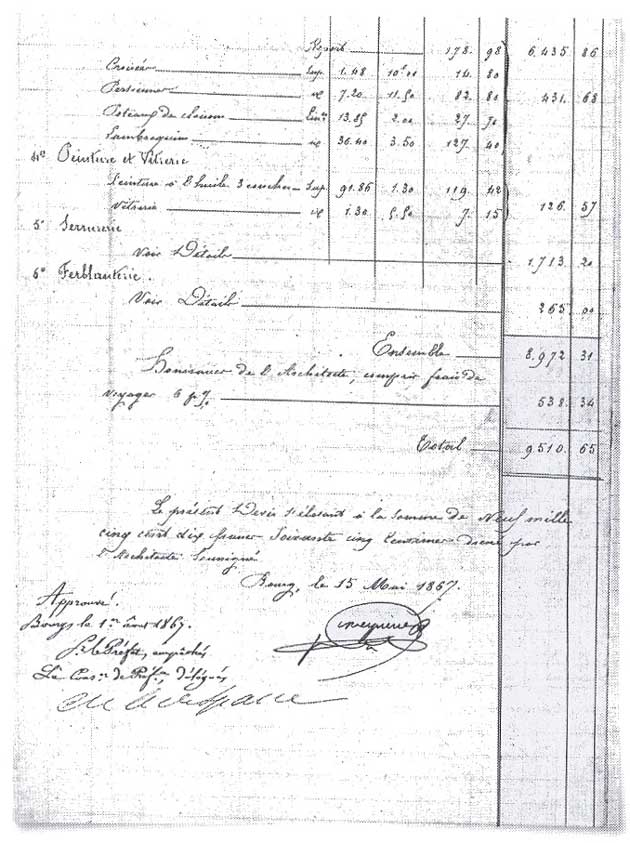 Report 178. 98 6.435 86
Croisées Sup 1.48 10f00 14 80
Persiennes id 7.20 11.50 82. 80 431. 68
Poteaux de cloison Lin. 13.85 2.00 27 70
Lambrequins id 36.40 3.50 127. 40
4° Peinture et Vitrerie
Peinture à l'huile 3 couches Sup 91.86 1.30 119. 42
Vitrerie id 1.30 5.50 7. 15 126. 57
5° Serrurerie
Voir Détail 1.713. 20
6° Ferblanterie.
Voir Détail 265 00
Ensemble 8.972 31
Honoraires de l'Architecte, compris frais de
voyages 6 p% 538. 34
Total 9510. 65
Le présent Devis s'élevant à la somme de Neuf mille
cinq cent dix francs Soixante cinq Centimes dressé par
l'Architecte Soussigné
Bourg, le 15 Mai 1867.
Approuvé.
Bourg le 1er 1867.
Pr le Préfet, empêché
Le Cons. de Préf., délégué